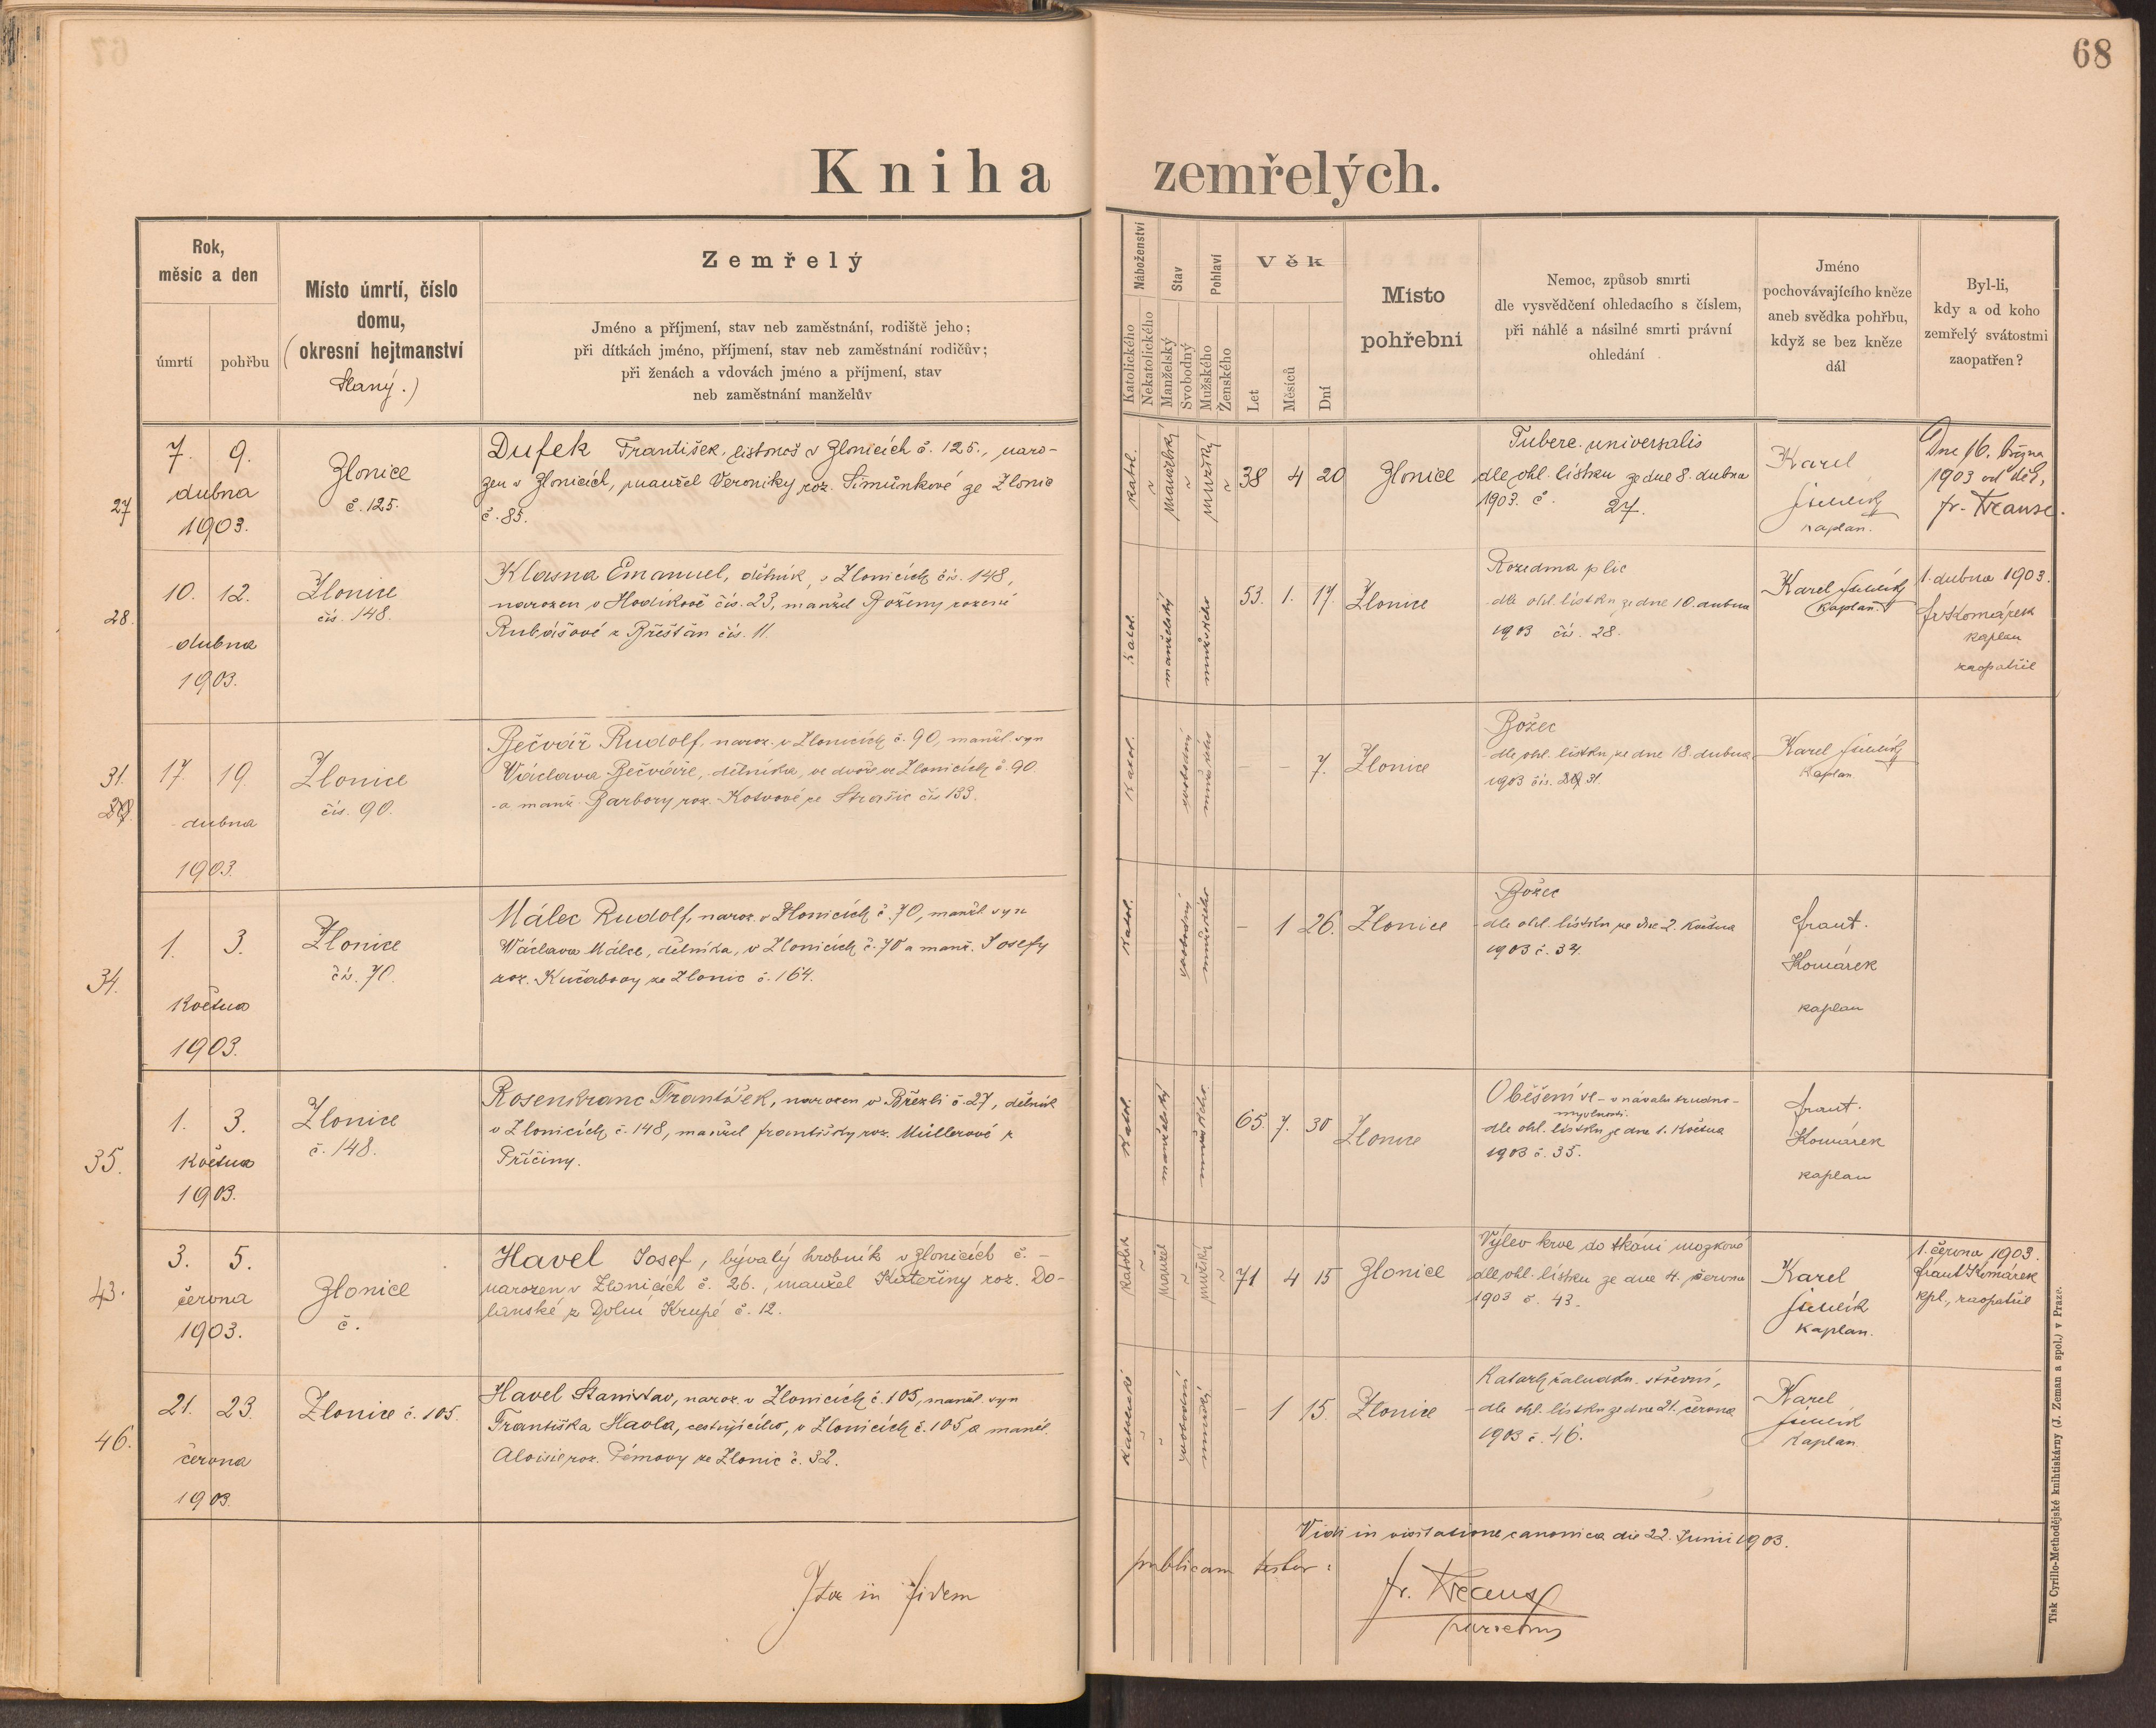 68
Kniha zemřelých.
Rok,
měsíc a den
úmrtí
pohřbu
Místo úmrtí, číslo
domu,
(okresní hejtmanství
Slaný.)
Zemřelý
Jméno a příjmení, stav neb zaměstnání, rodiště jeho;
při dítkách jméno, příjmení, stav neb zaměstnání rodičův;
při ženách a vdovách jméno a příjmení, stav
neb zaměstnání manželův
Náboženství
Katolického
Nekatolického
Stav
Manželský
Svobodný
Pohlaví
Mužského
Ženského
Věk
Let
Měsíců
Dní
Místo
pohřební
Nemoc, způsob smrti
dle vysvědčení ohledacího s číslem,
při náhlé a násilné smrti právní
ohledání
Jméno
pochovávajícího kněze
aneb svědka pohřbu,
když se bez kněze
dál
Byl-li,
kdy a od koho
zemřelý svátostmi
zaopatřen?
27
7. 9.
dubna
1903.
Zlonice
č. 125.
Dufek František, listonoš v Zlonicích č. 125., naro-
zen v Zlonicích, manžel Veroniky roz. Šimůnkové ze Zlonic
č. 85.
katol.
manželský
mužský
38 4 20
Zlonice
Tuberc. universalis
dle ohl. lístku ze dne 8. dubna
1903. č. 27.
Karel
kaplan.
Dne 16. března
1903 od děk.
fr. Krause.
28.
10. 12.
dubna
1903.
Zlonice
čís. 148.
Klasna Emanuel, dělník, v Zlonicích čís. 148,
narozen v Hodíkově čís. 23, manžel Boženy rozené
Rubášové z Břešťan čís. 11.
katol.
manželský
mužského
53. 1. 17.
Zlonice
Rozedma plic
dle ohl. lístku ze dne 10. dubna
1903 čís. 28.
Karel
kaplan.
1. dubna 1903.
fr. Komárek
kaplan
zaopatřil
31.
17. 19.
dubna
1903.
Zlonice
čís. 90.
Bečvář Rudolf, naroz. v Zlonicích č. 90, manžl. syn
Václava Bečváře, dělníka, ve dvoře ve Zlonicích č. 90
a manž. Barbory roz. Kotvové ze Strašic čís 133.
katol.
svobodný
mužského
- - 7.
Zlonice
Božec
dle ohl. lístku ze dne 18. dubna
1903 čís. 31.
Karel
kaplan
34.
1. 3.
května
1903.
Zlonice
čís. 70.
Málec Rudolf, naroz. v Zlonicích č. 70, manžl. syn
Václava Málce, dělníka, v Zlonicích č. 70 a manž. Josefy
roz. Kučabovy ze Zlonic č. 164.
katol.
svobodný
mužského
- 1 26.
Zlonice
Božec
dle ohl. lístku ze dne 2. května
1903 č. 34.
frant.
Komárek
kaplan
35.
1. 3.
května
1903.
Zlonice
č. 148.
Rosenkranc František, narozen v Březli č. 27, dělník
v Zlonicích č. 148, manžel Františky roz. Müllerové z
Příčiny.
katol.
manželský
mužského
65. 7. 30
Zlonice
Oběšení se - v návalu trudno-
myslnosti.
dle ohl. lístku ze dne 1. května
1903 č. 35.
frant.
Komárek
kaplan
43.
3. 5.
června
1903.
Zlonice
č.
Havel Josef, bývalý hrobník v Zlonicích č. -
narozen v Zlonicích č. 26., manžel Kateřiny roz. Do-
lanské z Dolní Krupé č. 12.
katolík
manžel
mužský
71 4 15
Zlonice
Výlev krve do tkání mozkové
dle ohl. lístku ze dne 4. června
1903 č. 43.
Karel
kaplan.
1. června 1903.
frant Komárek
kpl., zaopatřil
46.
21. 23.
června
1903.
Zlonice č. 105.
Havel Stanislav, naroz. v Zlonicích č. 105, manžl. syn
Františka Havla, cestujícího, v Zlonicích č. 105 a manžl.
Aloisie roz. Pémovy ze Zlonic č. 32.
katolické
svobodný
mužský
- 1 15.
Zlonice
Katarh žaludku střevní,
dle ohl. lístku ze dne 21. června
1903 č. 46.
Karel
kaplan
Vidi in visitatione canonica die 22. Junii 1903.
Ita in fidem publicam testor:
fr. Kraus
Tisk Cyrillo-Methodějské knihtiskárny (J. Zeman a spol.) v Praze.